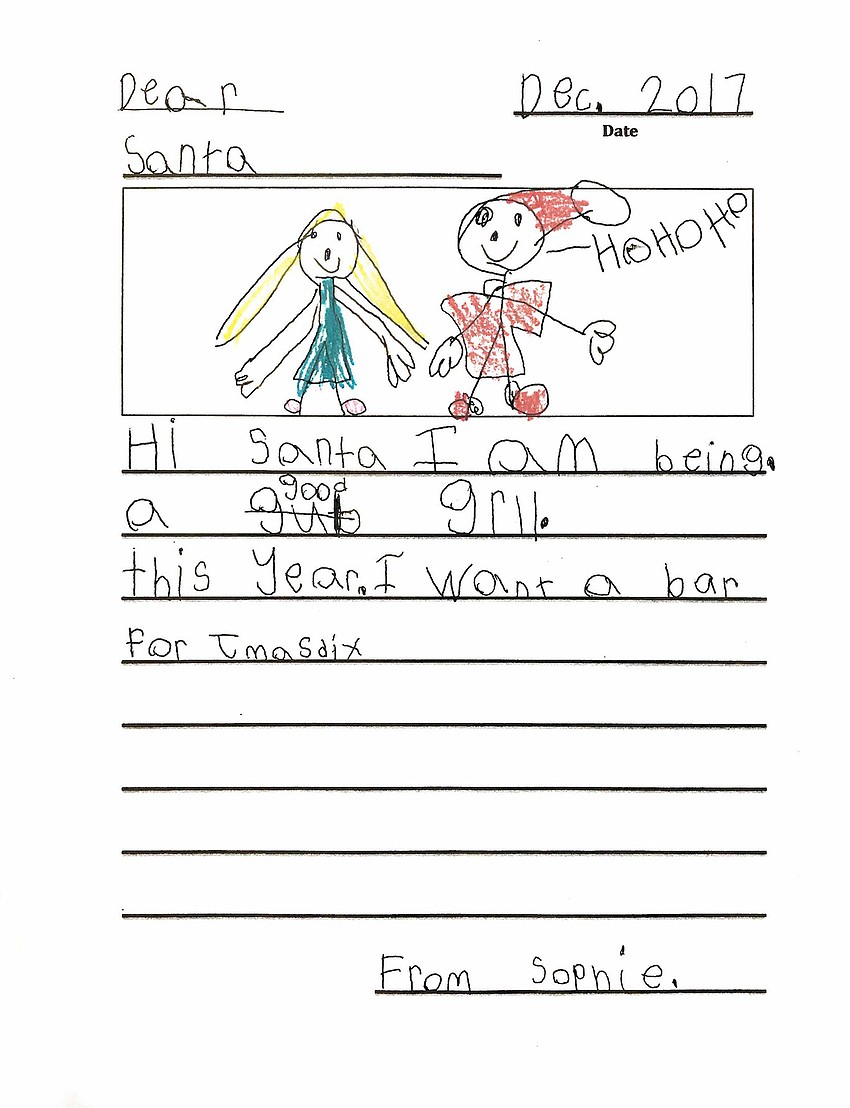 Dear
Dec. 2017
Date
Santa
HO HO HO
Hi Santa I am being.
good
a gub grll.
this Year. I want a bar
For Tmasdix
From Sophie.